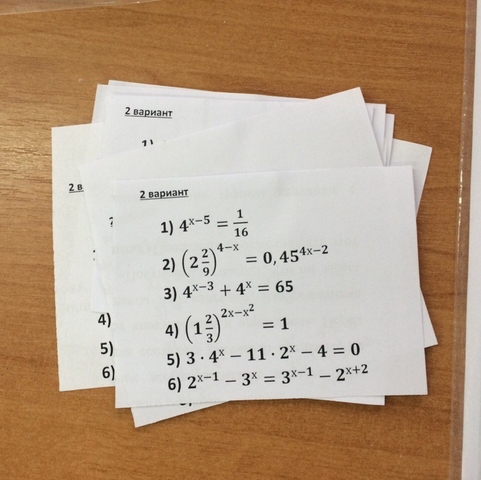 2 вариант
1)
2 в
4)
5)
6)
2 вариант
1) 4^{x−5} = \frac{1}{16}
2) (2\frac{2}{9})^{4−x} = 0,45^{4x−2}
3) 4^{x−3} + 4^{x} = 65
4) (1\frac{2}{3})^{2x−x^{2}} = 1
5) 3 · 4^{x} − 11 · 2^{x} − 4 = 0
6) 2^{x−1} − 3^{x} = 3^{x−1} − 2^{x+2}